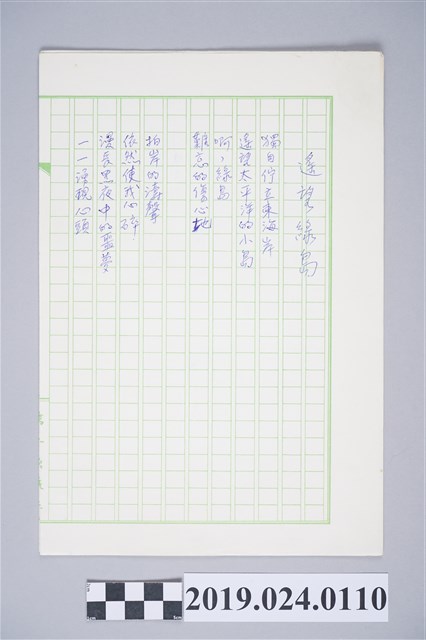 遙望綠島
獨自佇立東海岸
遙望太平洋的小島
啊，綠島
難忘的傷心地
拍岸的濤聲
依然使我心碎
漫長黑夜中的噩夢
一一浮現心頭
2019.024.0110